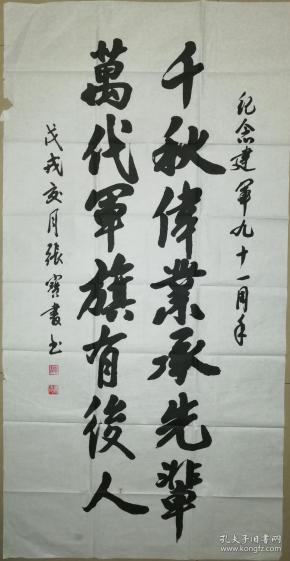 纪念建军九十一周年
千秋偉業承先輩
萬代軍旗有後人
戊戌亥月張寶書书
孔夫子旧书网